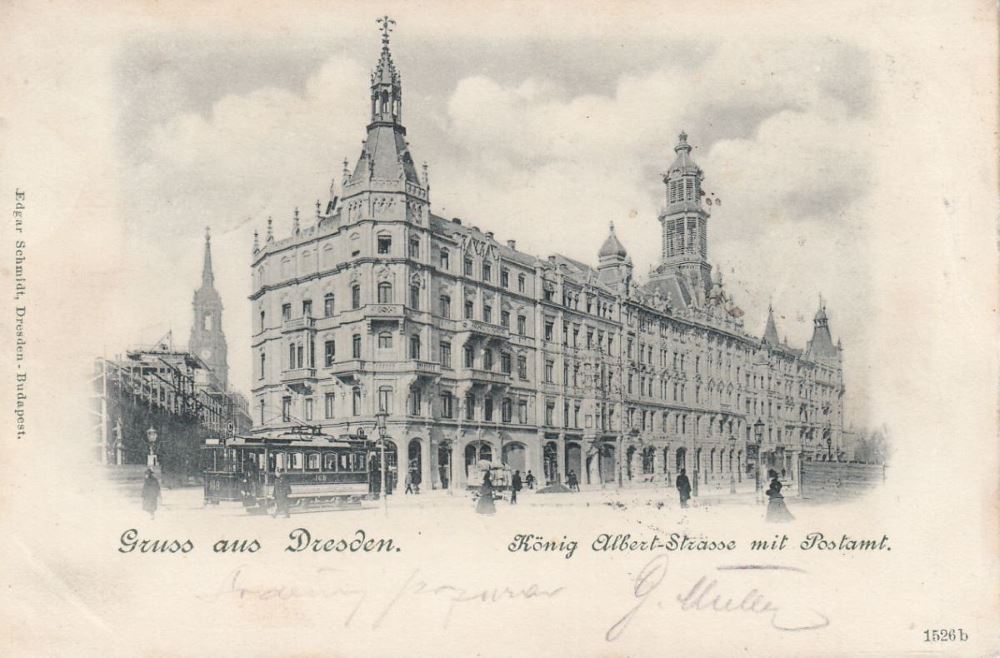 Edgar Schmidt, Dresden - Budapest.
168
Gruss aus Dresden.
König Albert-Strasse mit Postamt.
pozdrav G. Müller
1526 b